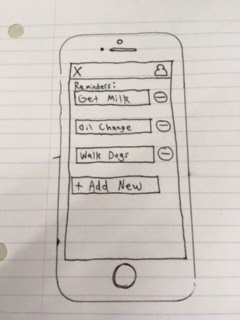 X
Reminders:
Get Milk
Oil Change
Walk Dogs
+ Add New